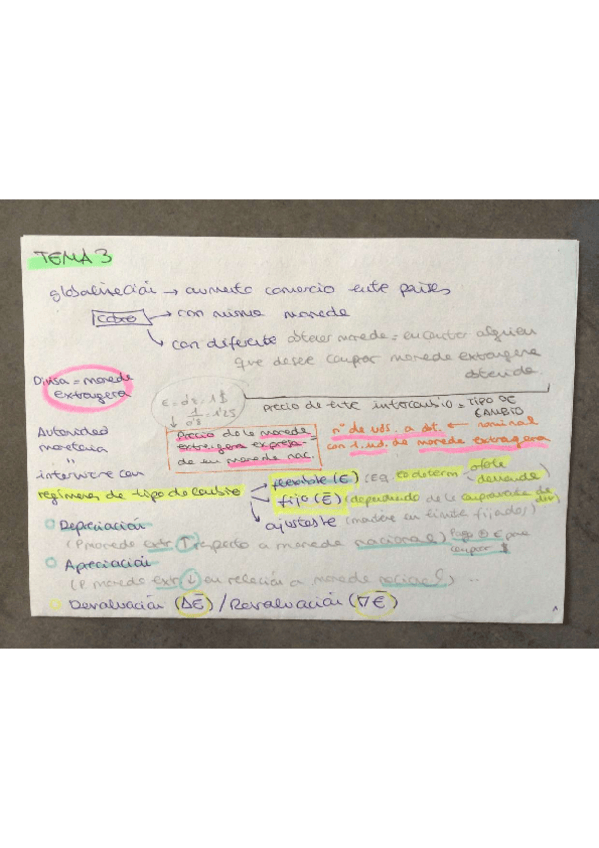 TEMA 3
globalización → aumento comercio entre países
cobro → con misma moneda
↘ con diferente obtener moneda = encontrar alguien
que desee comprar moneda extranjera
obtenida.
Divisa = moneda
extranjera
E = d€ = 1$
1
0'8 = 1'25
Precio de este intercambio = TIPO DE
CAMBIO
Precio de la moneda
extranjera expresa-
da en moneda nac.
=
nº de uds. a obt. ← nominal
con 1 ud. de moneda extranjera
Autoridad
monetaria
"
interviene con
regímenes de tipo de cambio
flexible (E) (Eq. lo determ. oferta
demanda
fijo (Ē) (dependiendo de la
ajustable (mantiene en límite fijados)
Depreciación
(P moneda extr ↑ respecto a moneda nacional) Pago ⊕ € para
comprar $
Apreciación
(P moneda extr ↓ en relación a moneda nacional) ..
Devaluación (△Ē) / Revaluación (▽Ē)